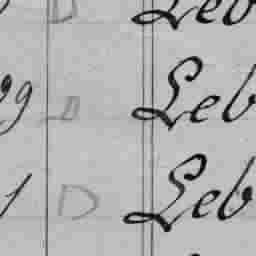 D Leb
29 D Leb
1 D Leb